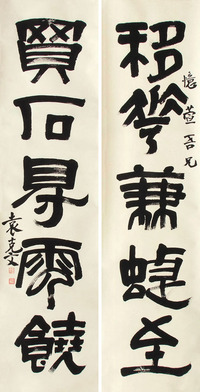 移華兼蜨至
憶萱吾兄
買石㝵雲饒
袁克文